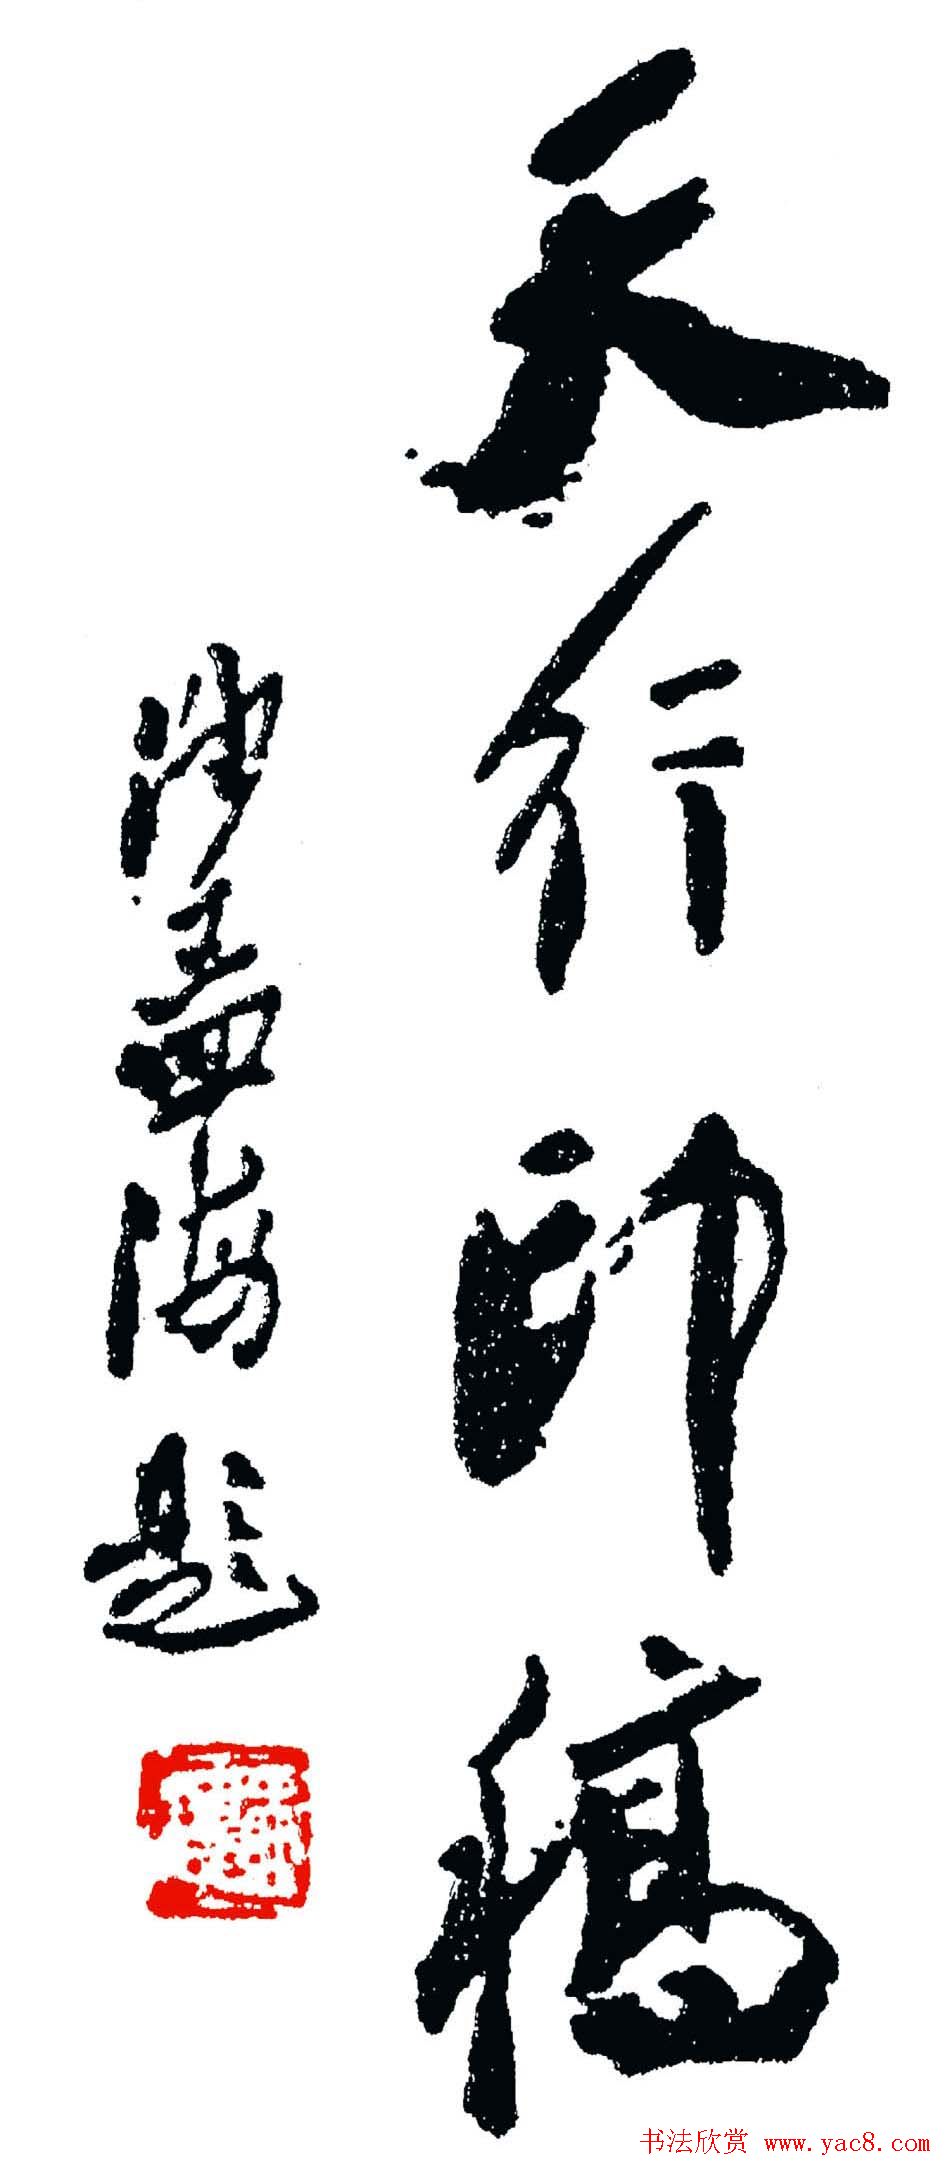 天行印稿
沙孟海题
书法欣赏 www.yac8.com